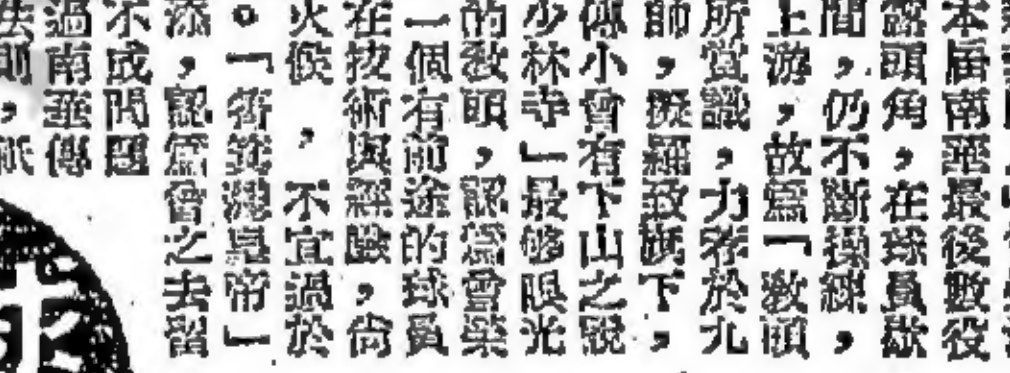 本届南華最後數役
露頭角，在球員歇
間，仍不斷操練，
上游，故爲「教頭
所賞識，力荐於九
師，擬羅致旗下，
傳小曾有下山之說
少林寺」最够眼光
的教頭，認爲曾榮
一個有前途的球員
在技術與經驗，尚
火候，不宜過於
。「筲箕灣皇帝」
添，認爲曾之去留
不成問題
過南華傳
師，祇